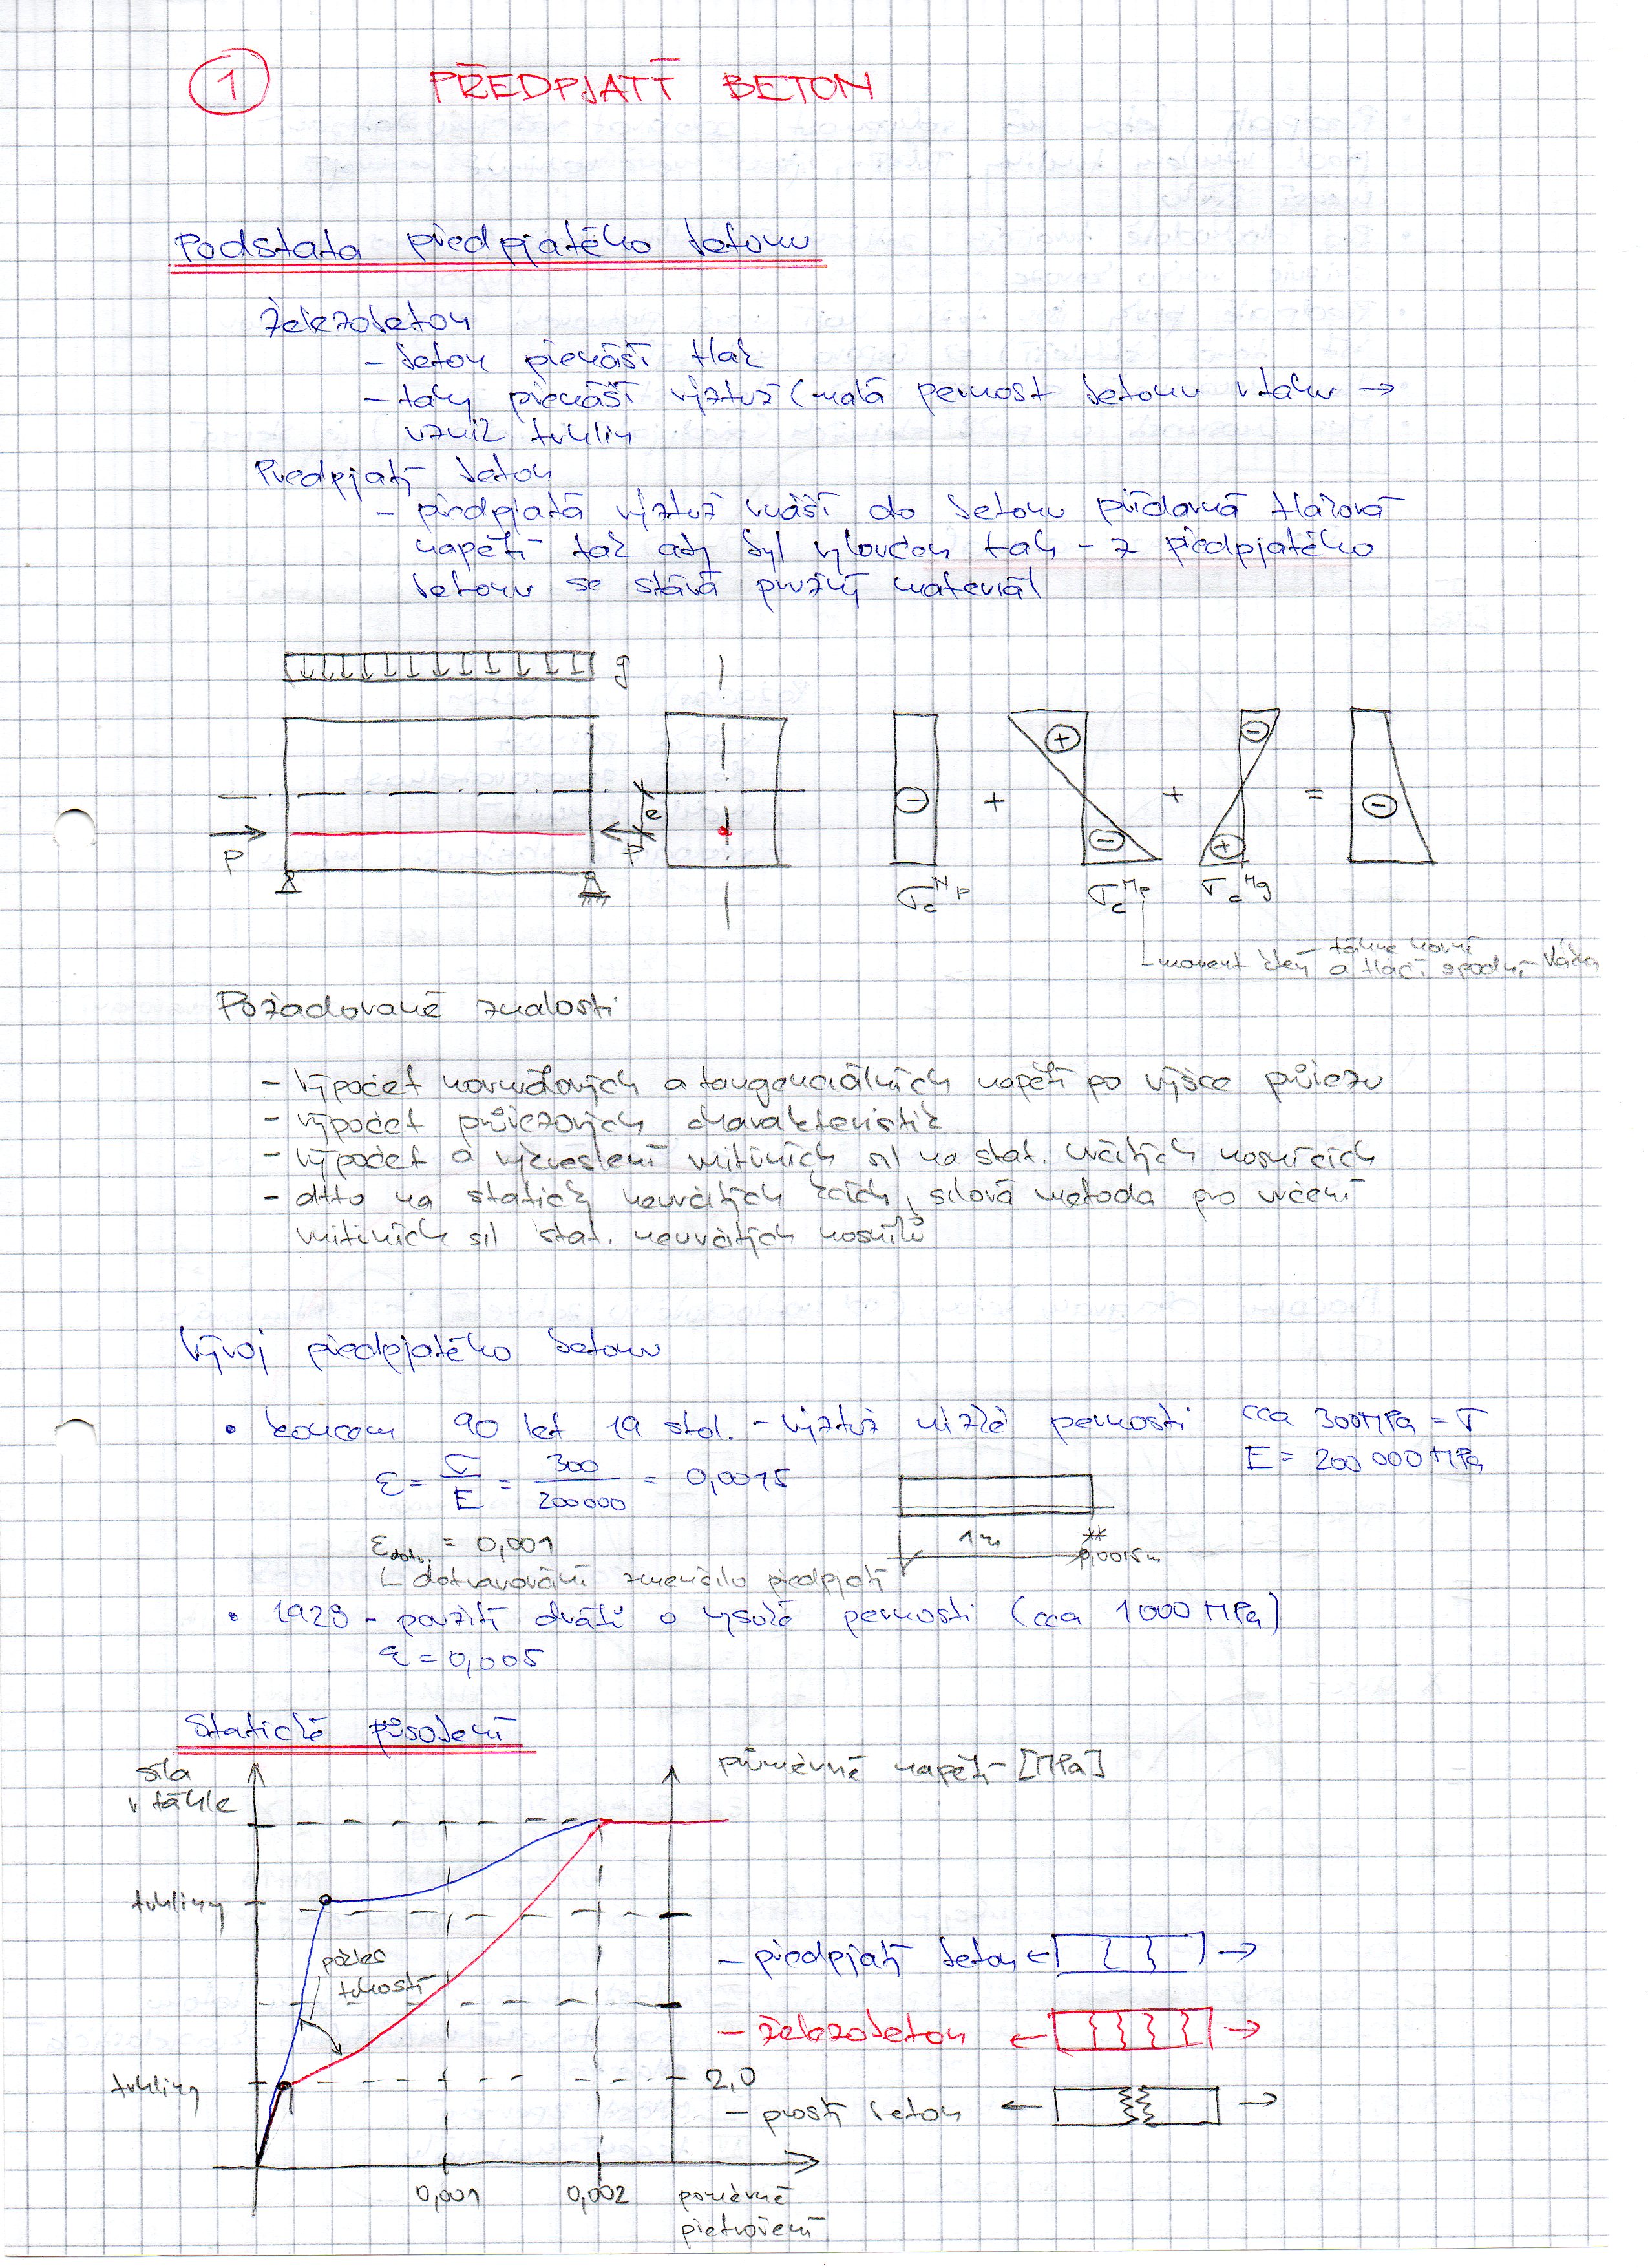 1 PŘEDPJATÝ BETON
Podstata předpjatého betonu
Železobeton
- beton přenáší tlak
- tahy přenáší výztuž (malá pevnost betonu v tahu →
vznik trhlin
Předpjatý beton
- předpjatá výztuž vnáší do betonu přídavná tlaková
napětí tak aby byl vyloučen tah - z předpjatého
betonu se stává pružný materiál
g
e
P P
+ - + - + - + = -
σc^Np σc^Mp σc^Mg
moment který táhne horní a tlačí spodní vlákna
Požadované znalosti
- výpočet normálových a tangenciálních napětí po výšce průřezu
- výpočet průřezových charakteristik
- výpočet a vykreslení vnitřních sil na stat. určitých nosnících
- dtto na staticky neurčitých kcích, silová metoda pro určení
vnitřních sil stat. neurčitých nosníků
Vývoj předpjatého betonu
• koncem 90 let 19 stol. - výztuž nízké pevnosti cca 300 MPa = σ
E = 200 000 MPa
ε = σ/E = 300/200000 = 0,0015
1m
0,0015m
εdotv. = 0,001
dotvarování zmenšilo předpjatí
• 1928 - použití drátů o vysoké pevnosti (cca 1000 MPa)
ε = 0,005
Statické působení
síla
v táhle
průměrné napětí [MPa]
trhliny
pokles
tuhosti
- předpjatý beton
- železobeton
trhliny
2,0
- prostý beton
0,001 0,002 poměrné
přetvoření